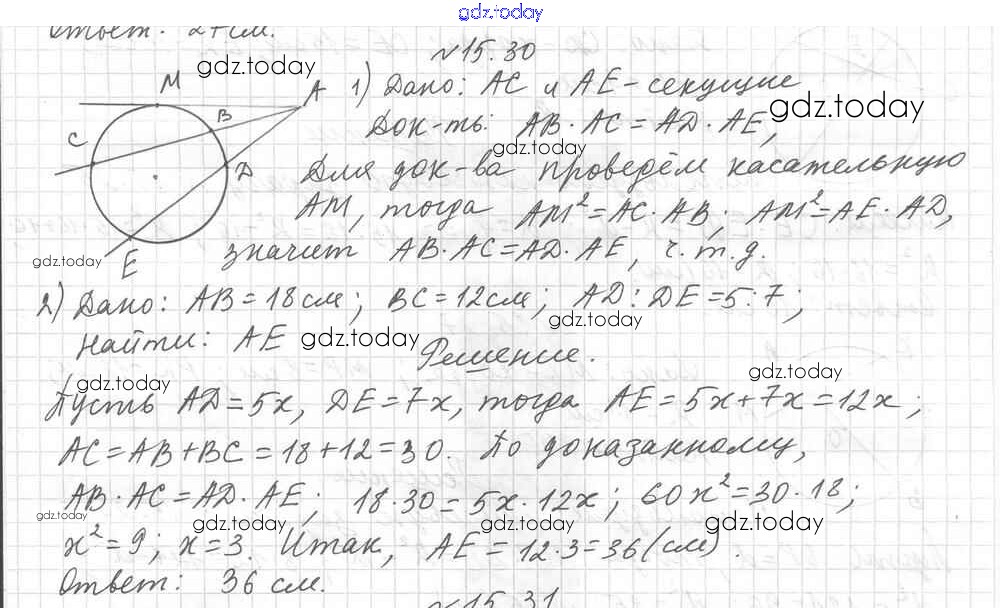 gdz.today
Ответ: 27 см.
№15.30
gdz.today
M
A
B
C
D
E
1) Дано: AC и AE - секущие
gdz.today
Док-ть: AB · AC = AD · AE,
gdz.today
Для док-ва проведём касательную
AM, тогда AM² = AC · AB; AM² = AE · AD,
значит AB · AC = AD · AE, ч.т.д.
gdz.today
2) Дано: AB = 18 см; BC = 12 см; AD : DE = 5 : 7;
gdz.today
Найти: AE
gdz.today
Решение.
gdz.today
gdz.today
Пусть AD = 5x, DE = 7x, тогда AE = 5x + 7x = 12x;
AC = AB + BC = 18 + 12 = 30. По доказанному,
AB · AC = AD · AE; 18 · 30 = 5x · 12x; 60x² = 30 · 18;
gdz.today
gdz.today
gdz.today
gdz.today
x² = 9; x = 3. Итак, AE = 12 · 3 = 36 (см).
Ответ: 36 см.
№15.31